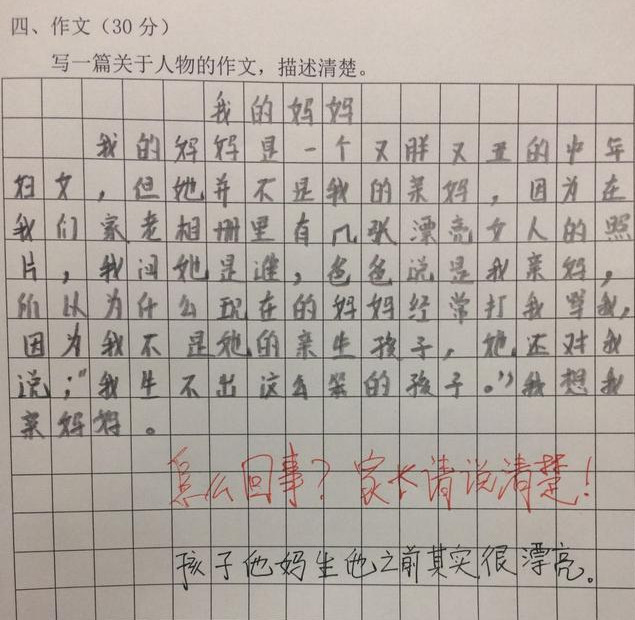 四、作文（30分）
写一篇关于人物的作文，描述清楚。
我的妈妈
我的妈妈是一个又胖又丑的中年
妇女，但她并不是我的亲妈，因为在
我们家老相册里有几张漂亮女人的照
片，我问她是谁，爸爸说是我亲妈，
所以为什么现在的妈妈经常打我骂我，
因为我不是她的亲生孩子，她还对我
说；“我生不出这么笨的孩子。”我想我
亲妈妈。
怎么回事？家长请说清楚！
孩子他妈生他之前其实很漂亮。